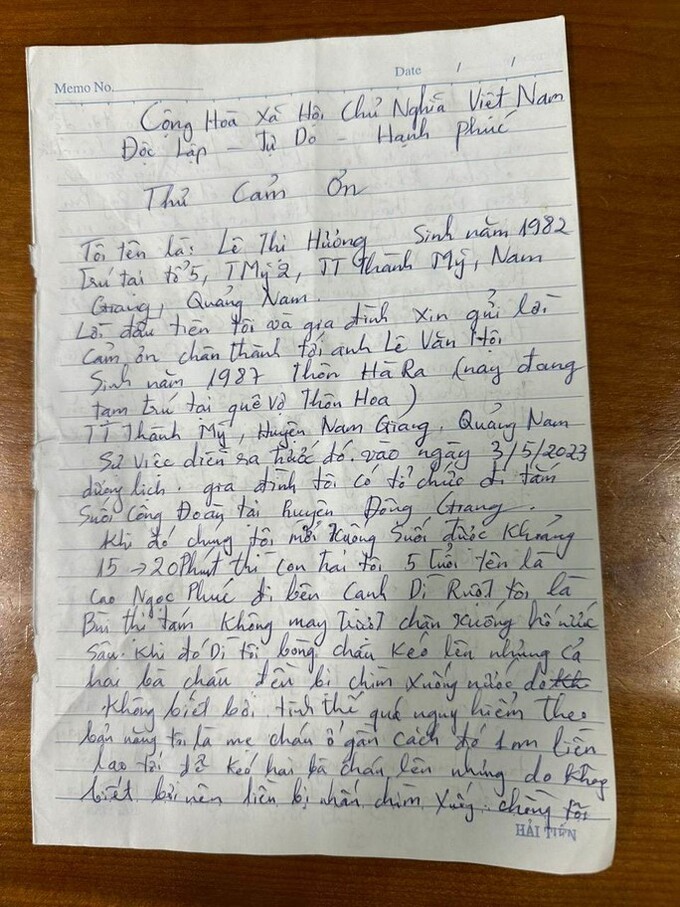 Date / /
Memo No.
Cộng Hoà Xã Hội Chủ Nghĩa Việt Nam
Độc Lập - Tự Do - Hạnh phúc
Thư Cảm Ơn
Tôi tên là: Lê Thị Hường Sinh năm 1982
Trú tại tổ 5, TMỹ 2, TT Thành Mỹ, Nam
Giang, Quảng Nam.
Lời đầu tiên tôi và gia đình xin gửi lời
cảm ơn chân thành tới anh Lê Văn Hội
Sinh năm 1987 Thôn Hà Ra (nay đang
tạm trú tại quê vợ Thôn Hoa)
TT Thành Mỹ, Huyện Nam Giang, Quảng Nam
Sự việc diễn ra trước đó. vào ngày 3/5/2023
dương lịch. gia đình tôi có tổ chức đi tắm
Suối Công Đoàn tại huyện Đông Giang.
Khi đó chúng tôi mới xuống suối được khoảng
15 → 20 Phút thì con trai tôi 5 tuổi tên là
Cao Ngọc Phúc đi bên cạnh Dì Ruột tôi là
Bùi thị tám không may trượt chân xuống hố nước
sâu. khi đó Dì tôi bồng cháu kéo lên nhưng cả
hai bà cháu đều bị chìm xuống nước do
không biết bơi. tình thế quá nguy hiểm theo
bản năng tôi là mẹ cháu ở gần cách đó 1m liền
lao tới để kéo hai bà cháu lên nhưng do không
biết bơi nên liền bị nhấn chìm xuống. chồng tôi
HẢI TIẾN